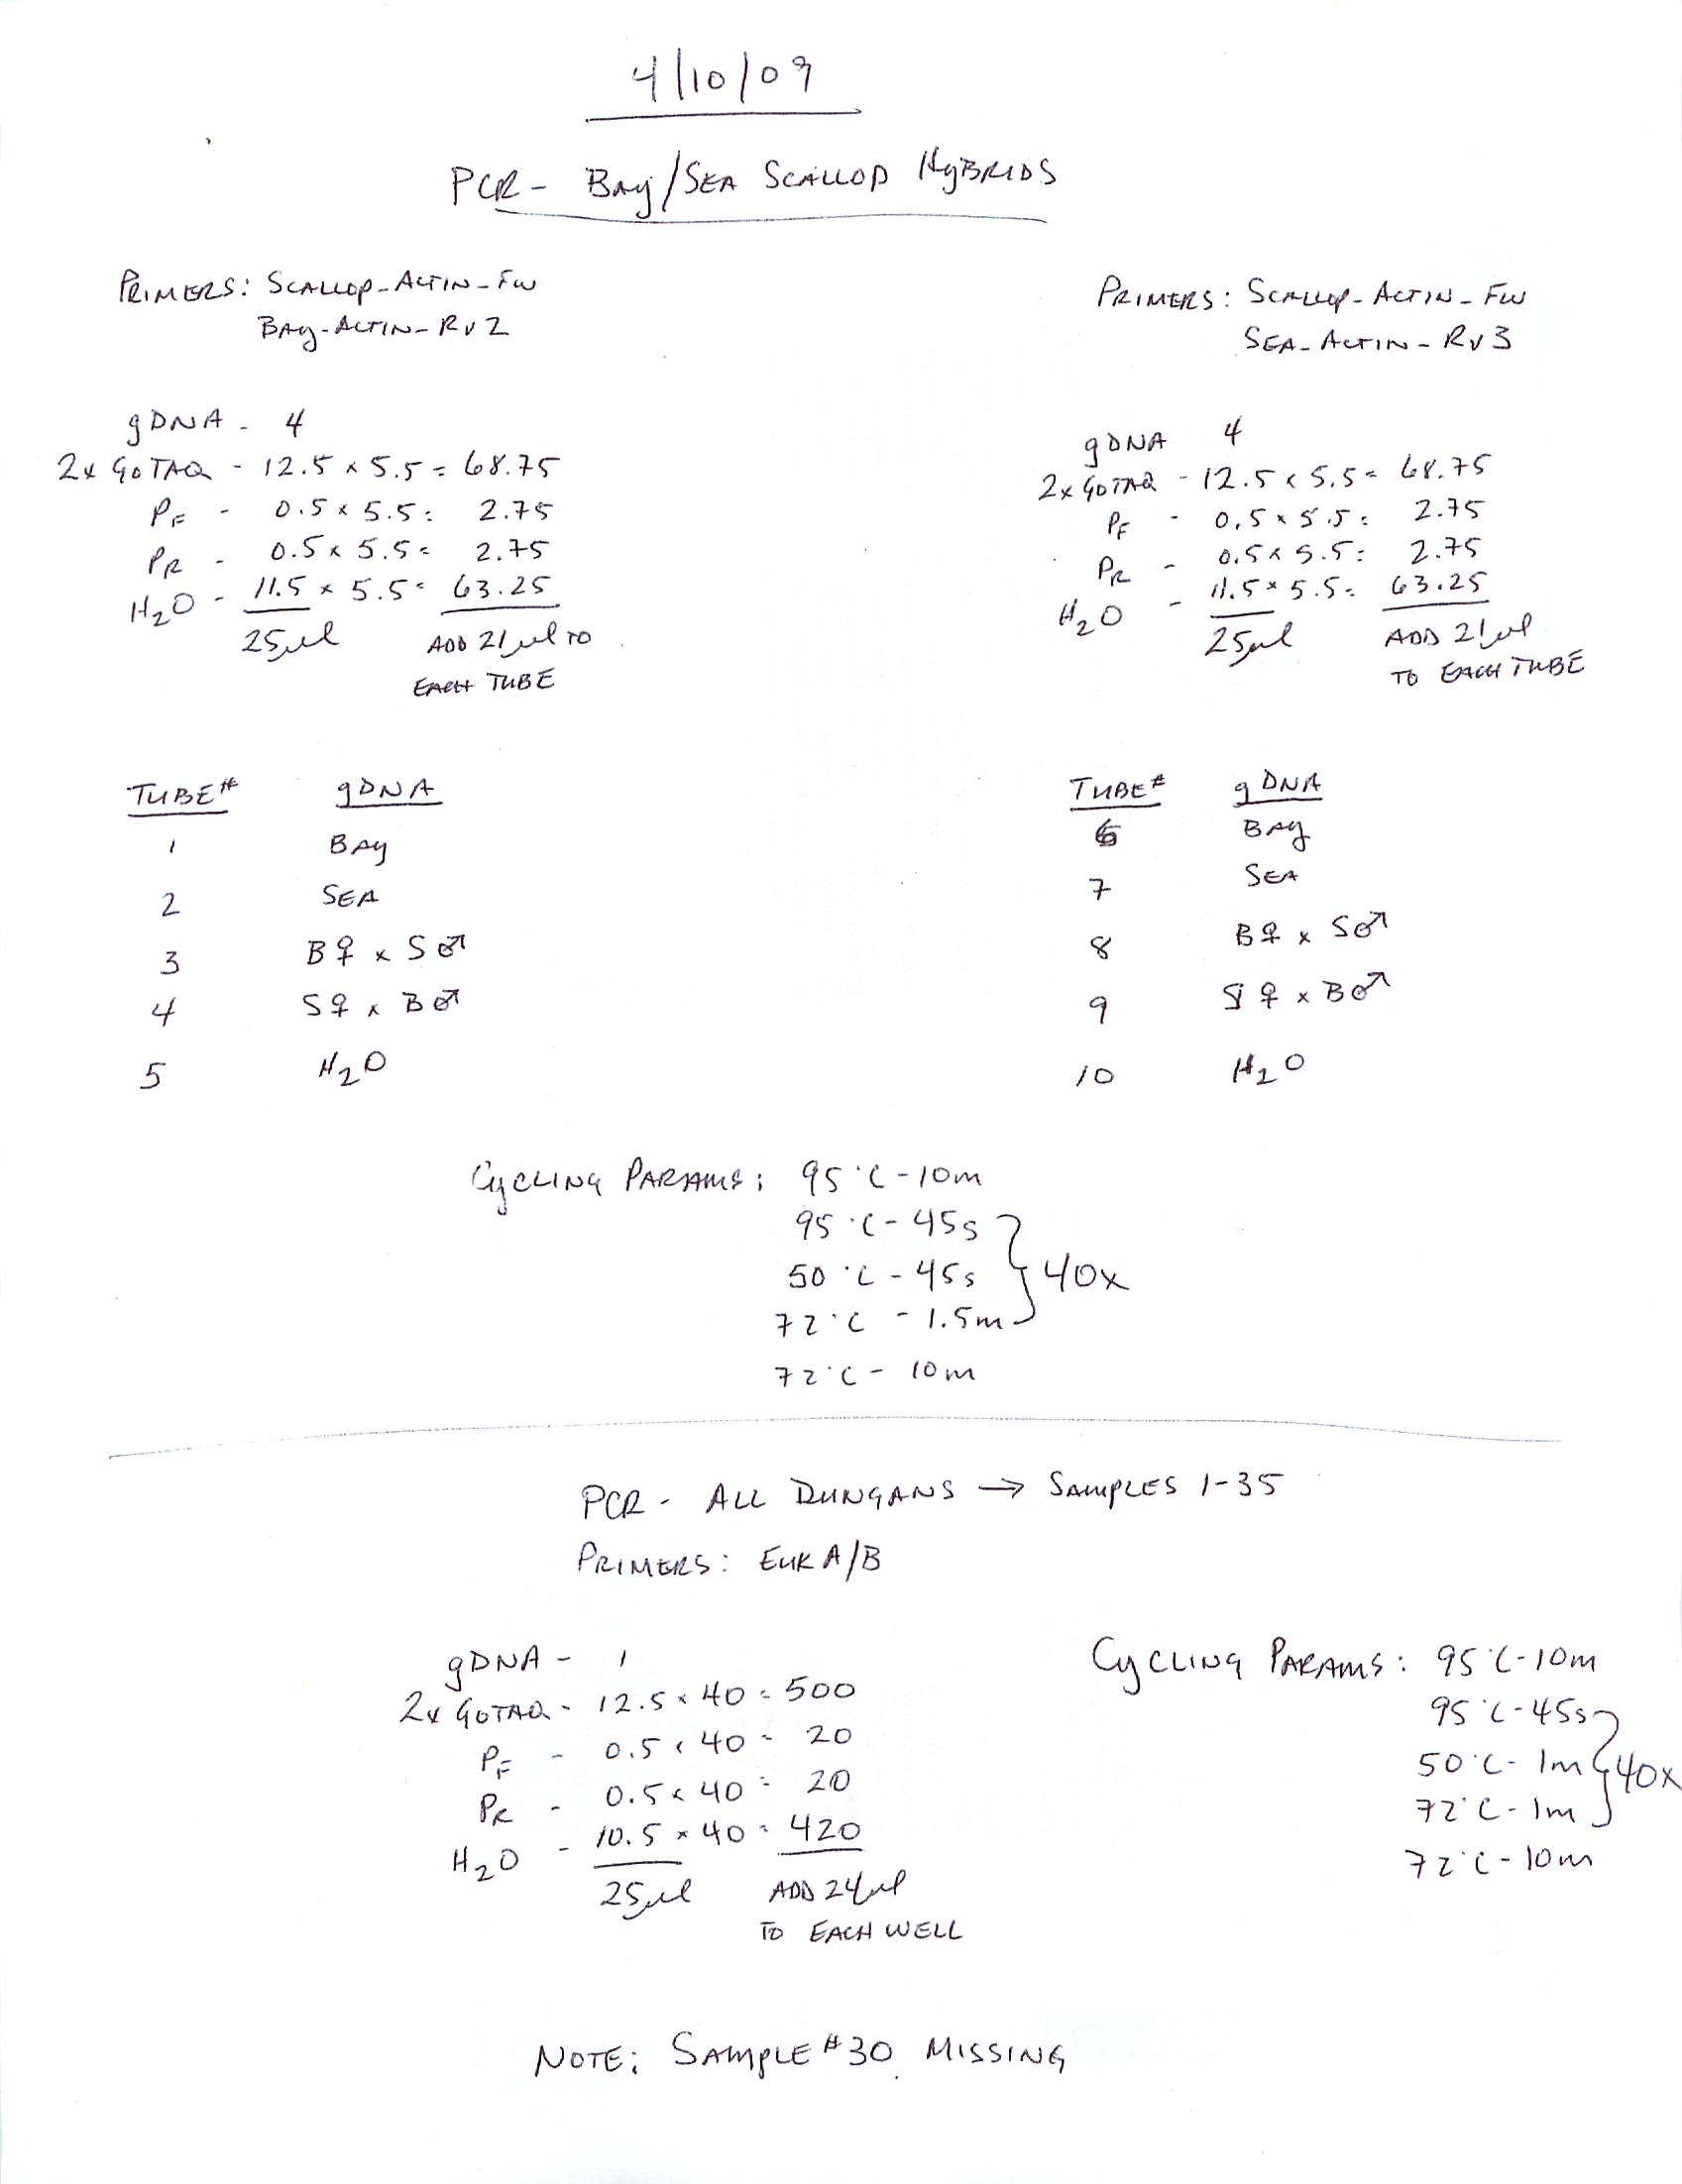 4/10/09
PCR - BAY/SEA SCALLOP HYBRIDS
PRIMERS: SCALLOP-ACTIN-FW
BAY-ACTIN-RV2
gDNA - 4
2x GOTAQ - 12.5 x 5.5 = 68.75
PF - 0.5 x 5.5 = 2.75
PR - 0.5 x 5.5 = 2.75
H2O - 11.5 x 5.5 = 63.25
25µl ADD 21µl TO
EACH TUBE
TUBE# gDNA
1 BAY
2 SEA
3 B♀ x S♂
4 S♀ x B♂
5 H2O
PRIMERS: SCALLOP-ACTIN-FW
SEA-ACTIN-RV3
gDNA 4
2x GOTAQ - 12.5 x 5.5 = 68.75
PF - 0.5 x 5.5 = 2.75
PR - 0.5 x 5.5 = 2.75
H2O - 11.5 x 5.5 = 63.25
25µl ADD 21µl
TO EACH TUBE
TUBE# gDNA
6 BAY
7 SEA
8 B♀ x S♂
9 S♀ x B♂
10 H2O
CYCLING PARAMS: 95°C - 10m
95°C - 45s
50°C - 45s } 40x
72°C - 1.5m
72°C - 10m
PCR - ALL DUNGANS → SAMPLES 1-35
PRIMERS: EUK A/B
gDNA - 1
2x GOTAQ - 12.5 x 40 = 500
PF - 0.5 x 40 = 20
PR - 0.5 x 40 = 20
H2O - 10.5 x 40 = 420
25µl ADD 24µl
TO EACH WELL
CYCLING PARAMS: 95°C - 10m
95°C - 45s
50°C - 1m } 40x
72°C - 1m
72°C - 10m
NOTE: SAMPLE #30 MISSING